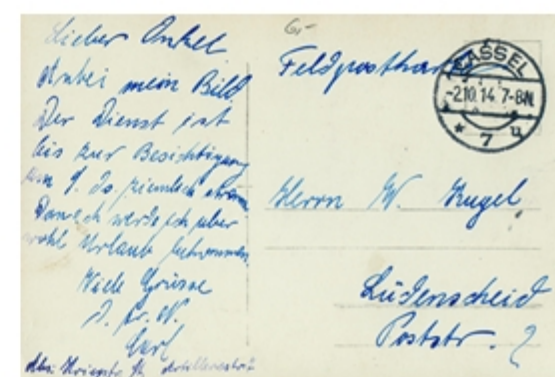 Lieber Onkel
Anbei mein Bild
Der Dienst ist
bis zur Besichtigung
am 9. ds. ziemlich stramm
Danach werde ich aber
wohl Urlaub bekommen.
Viele Grüsse
Carl
6,-
Feldpostkarte
CASSEL
-2.10.14. 7-8N.
* 7 u
Herrn W. Kugel
Lüdenscheid
Poststr. 2